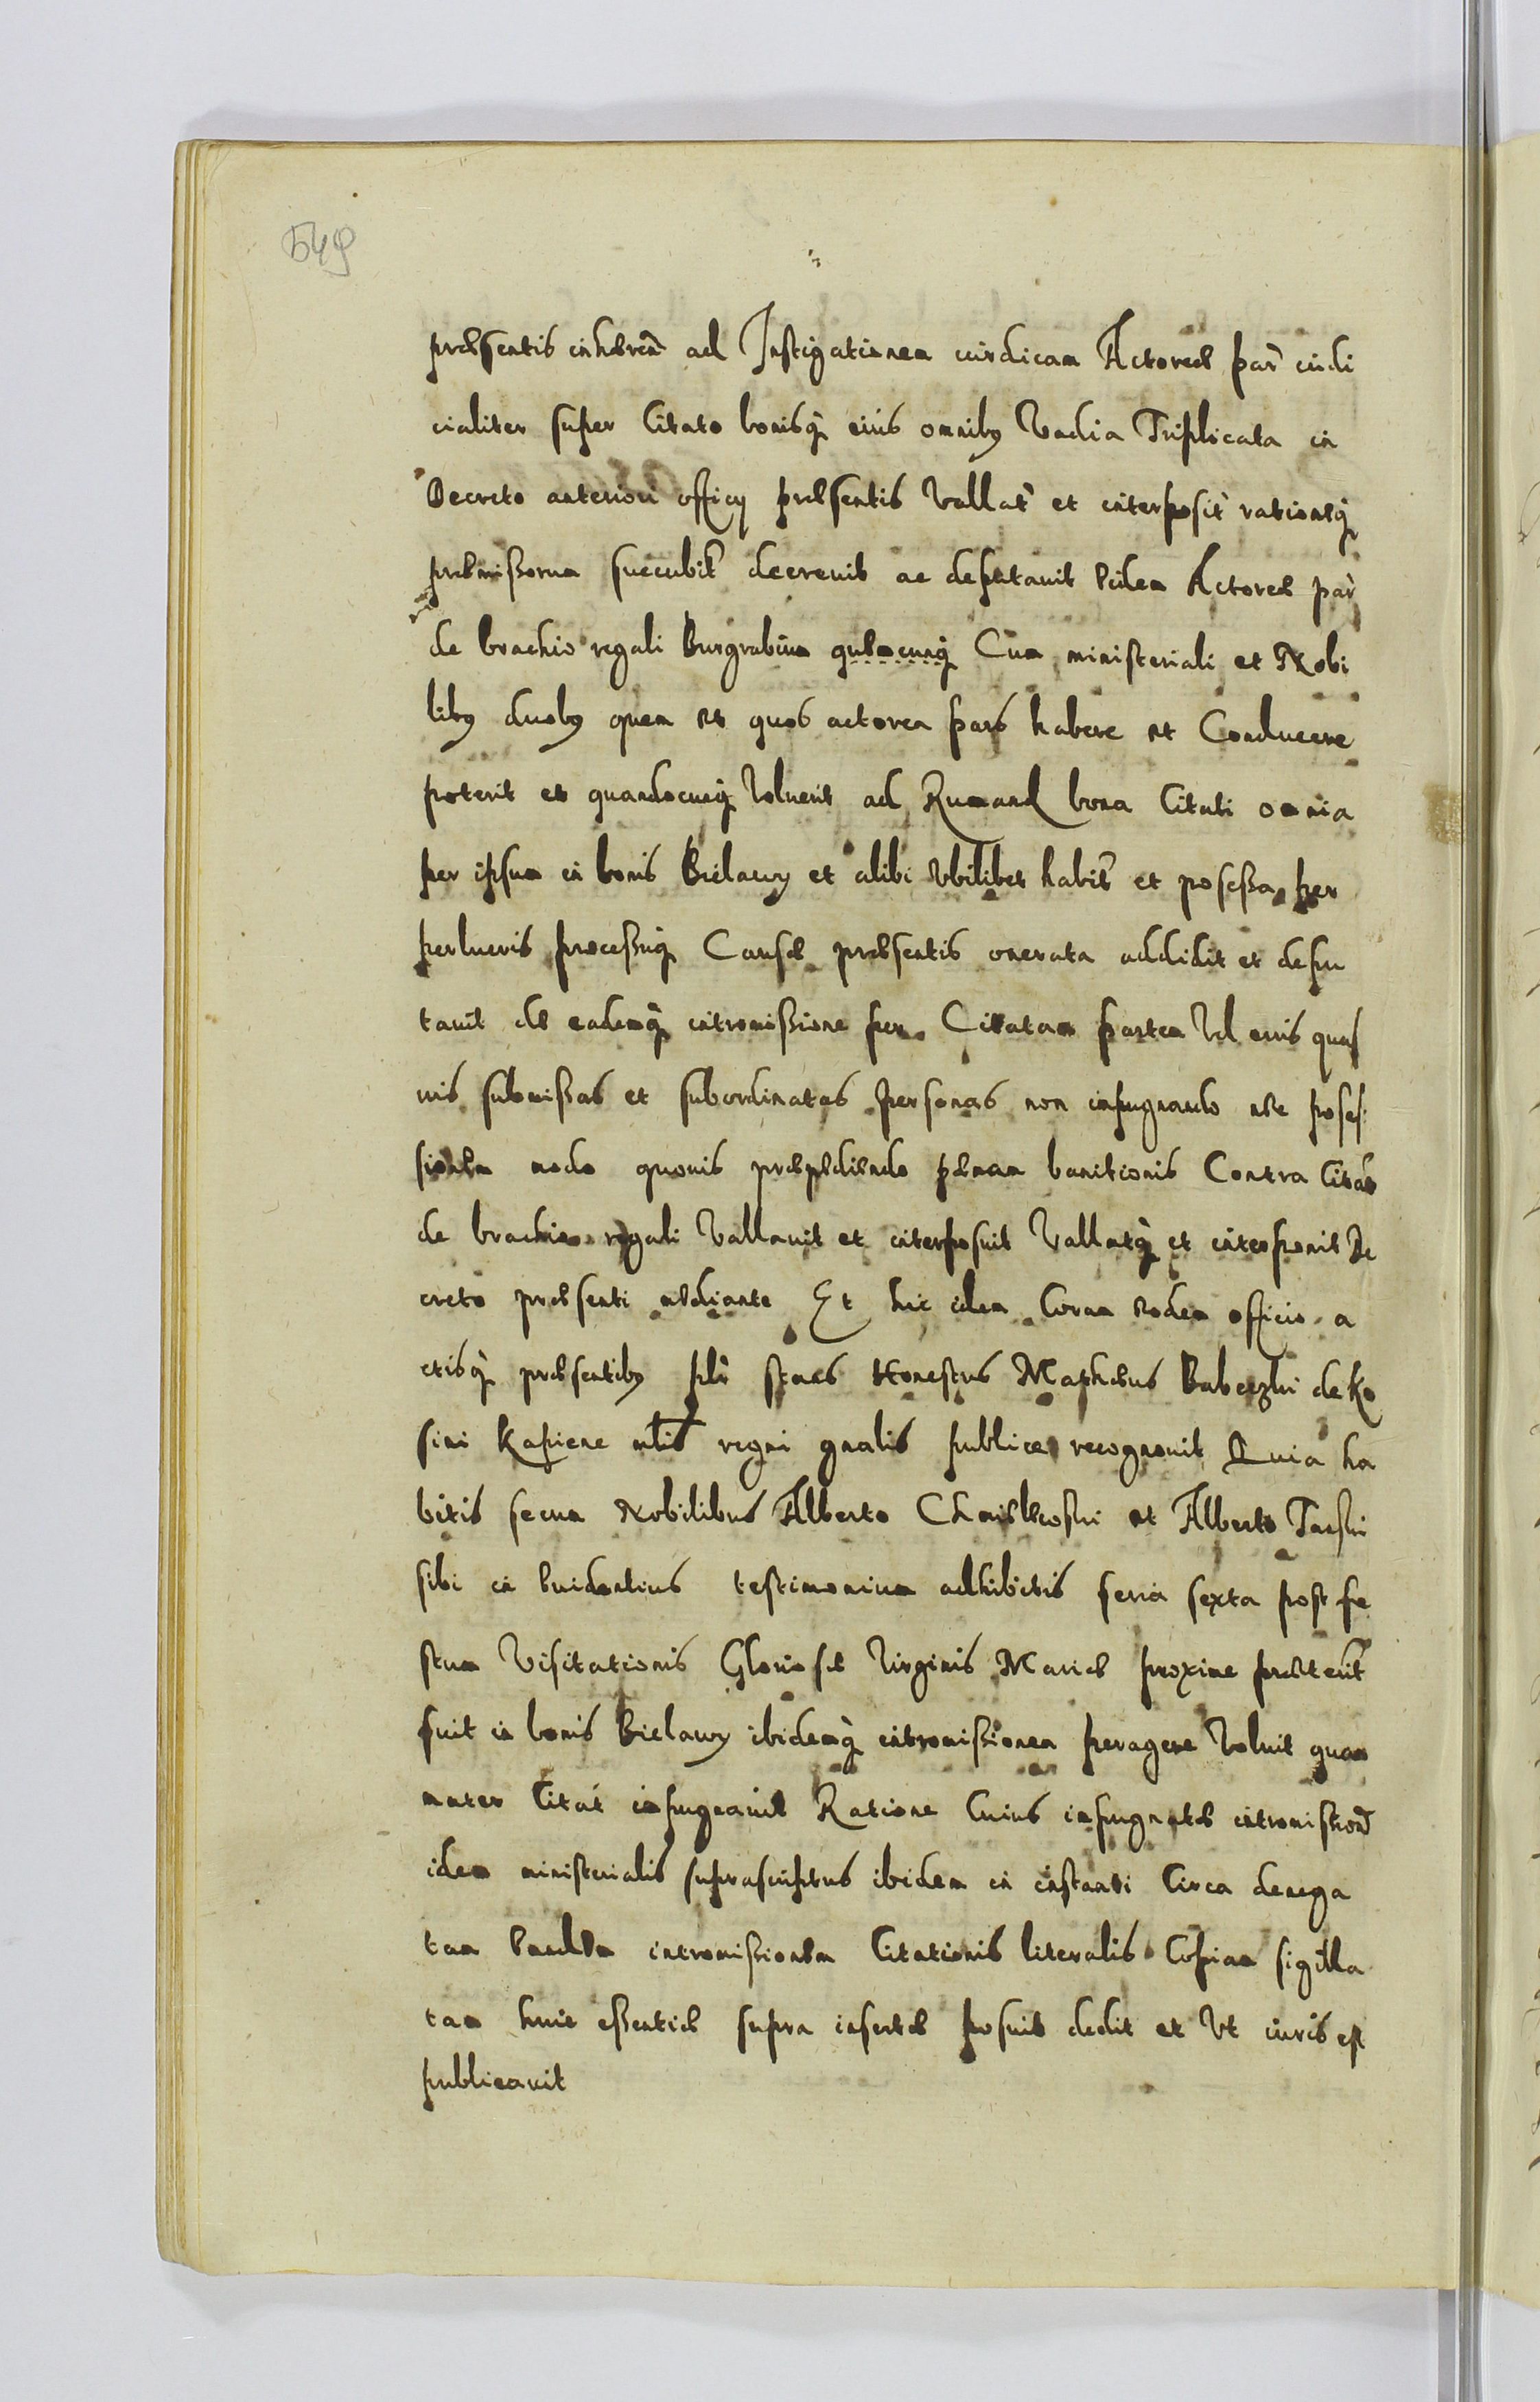 549
præsentis inhæren ad Instigationem iuridicam Actoreæ par iudi
cialiter super Citato bonisq eius omnibus Vadia Triplicata in
Decreto anteriori officy præsentis Vallat et interposit rationeq
præmissorum succubit decrevit ac deputavit eidem Actoreæ par
de brachio regali Burgrabium quemcunq Cum ministeriali et Nobi
libus duobus quem et quos actorea pars habere et Conducere
poterit et quandocunq Voluerit ad Rumand bona Citati omnia
per ipsum in bonis Bielawy et alibi Vbilibet habit et possessa per
perlucris processuq Causæ præsentis onerata addidit et depu
tavit de eademq intromissione per Citatam partem Vel eius quas
vis submissas et subordinatas personas non impugnando nec posses
sionem modo quovis præpediendo pœnam banitionis Contra Citat
de brachio regali Vallavit et interposuit Vallatq et interponit De
creto præsenti mediante Et hic idem Coram eodem officio a
ctisq præsentibus plr stans Honestus Mathæus Babeczki de Ko
sini Kapicze mtis regni gnalis publice recognovit Quia ha
bitis secum Nobilibus Alberto Chmilewski et Alberto
sibi in euidentius testimonium adhibitis feria sexta post fe
stum Visitationis Gloriosæ Virginis Mariæ proxime præterit
fuit in bonis Bielawy ibidemq intromissionem peragere Voluit quam
mater Citat impugnavit Ratione Cuius impugnatæ intromission
idem ministerialis suprascriptus ibidem in instanti Circa denega
tam eandem intromissionem Citationis literalis Copiam sigilla
tam huic essentiæ supra insertæ posuit dedit et Vt iuris est
publicavit